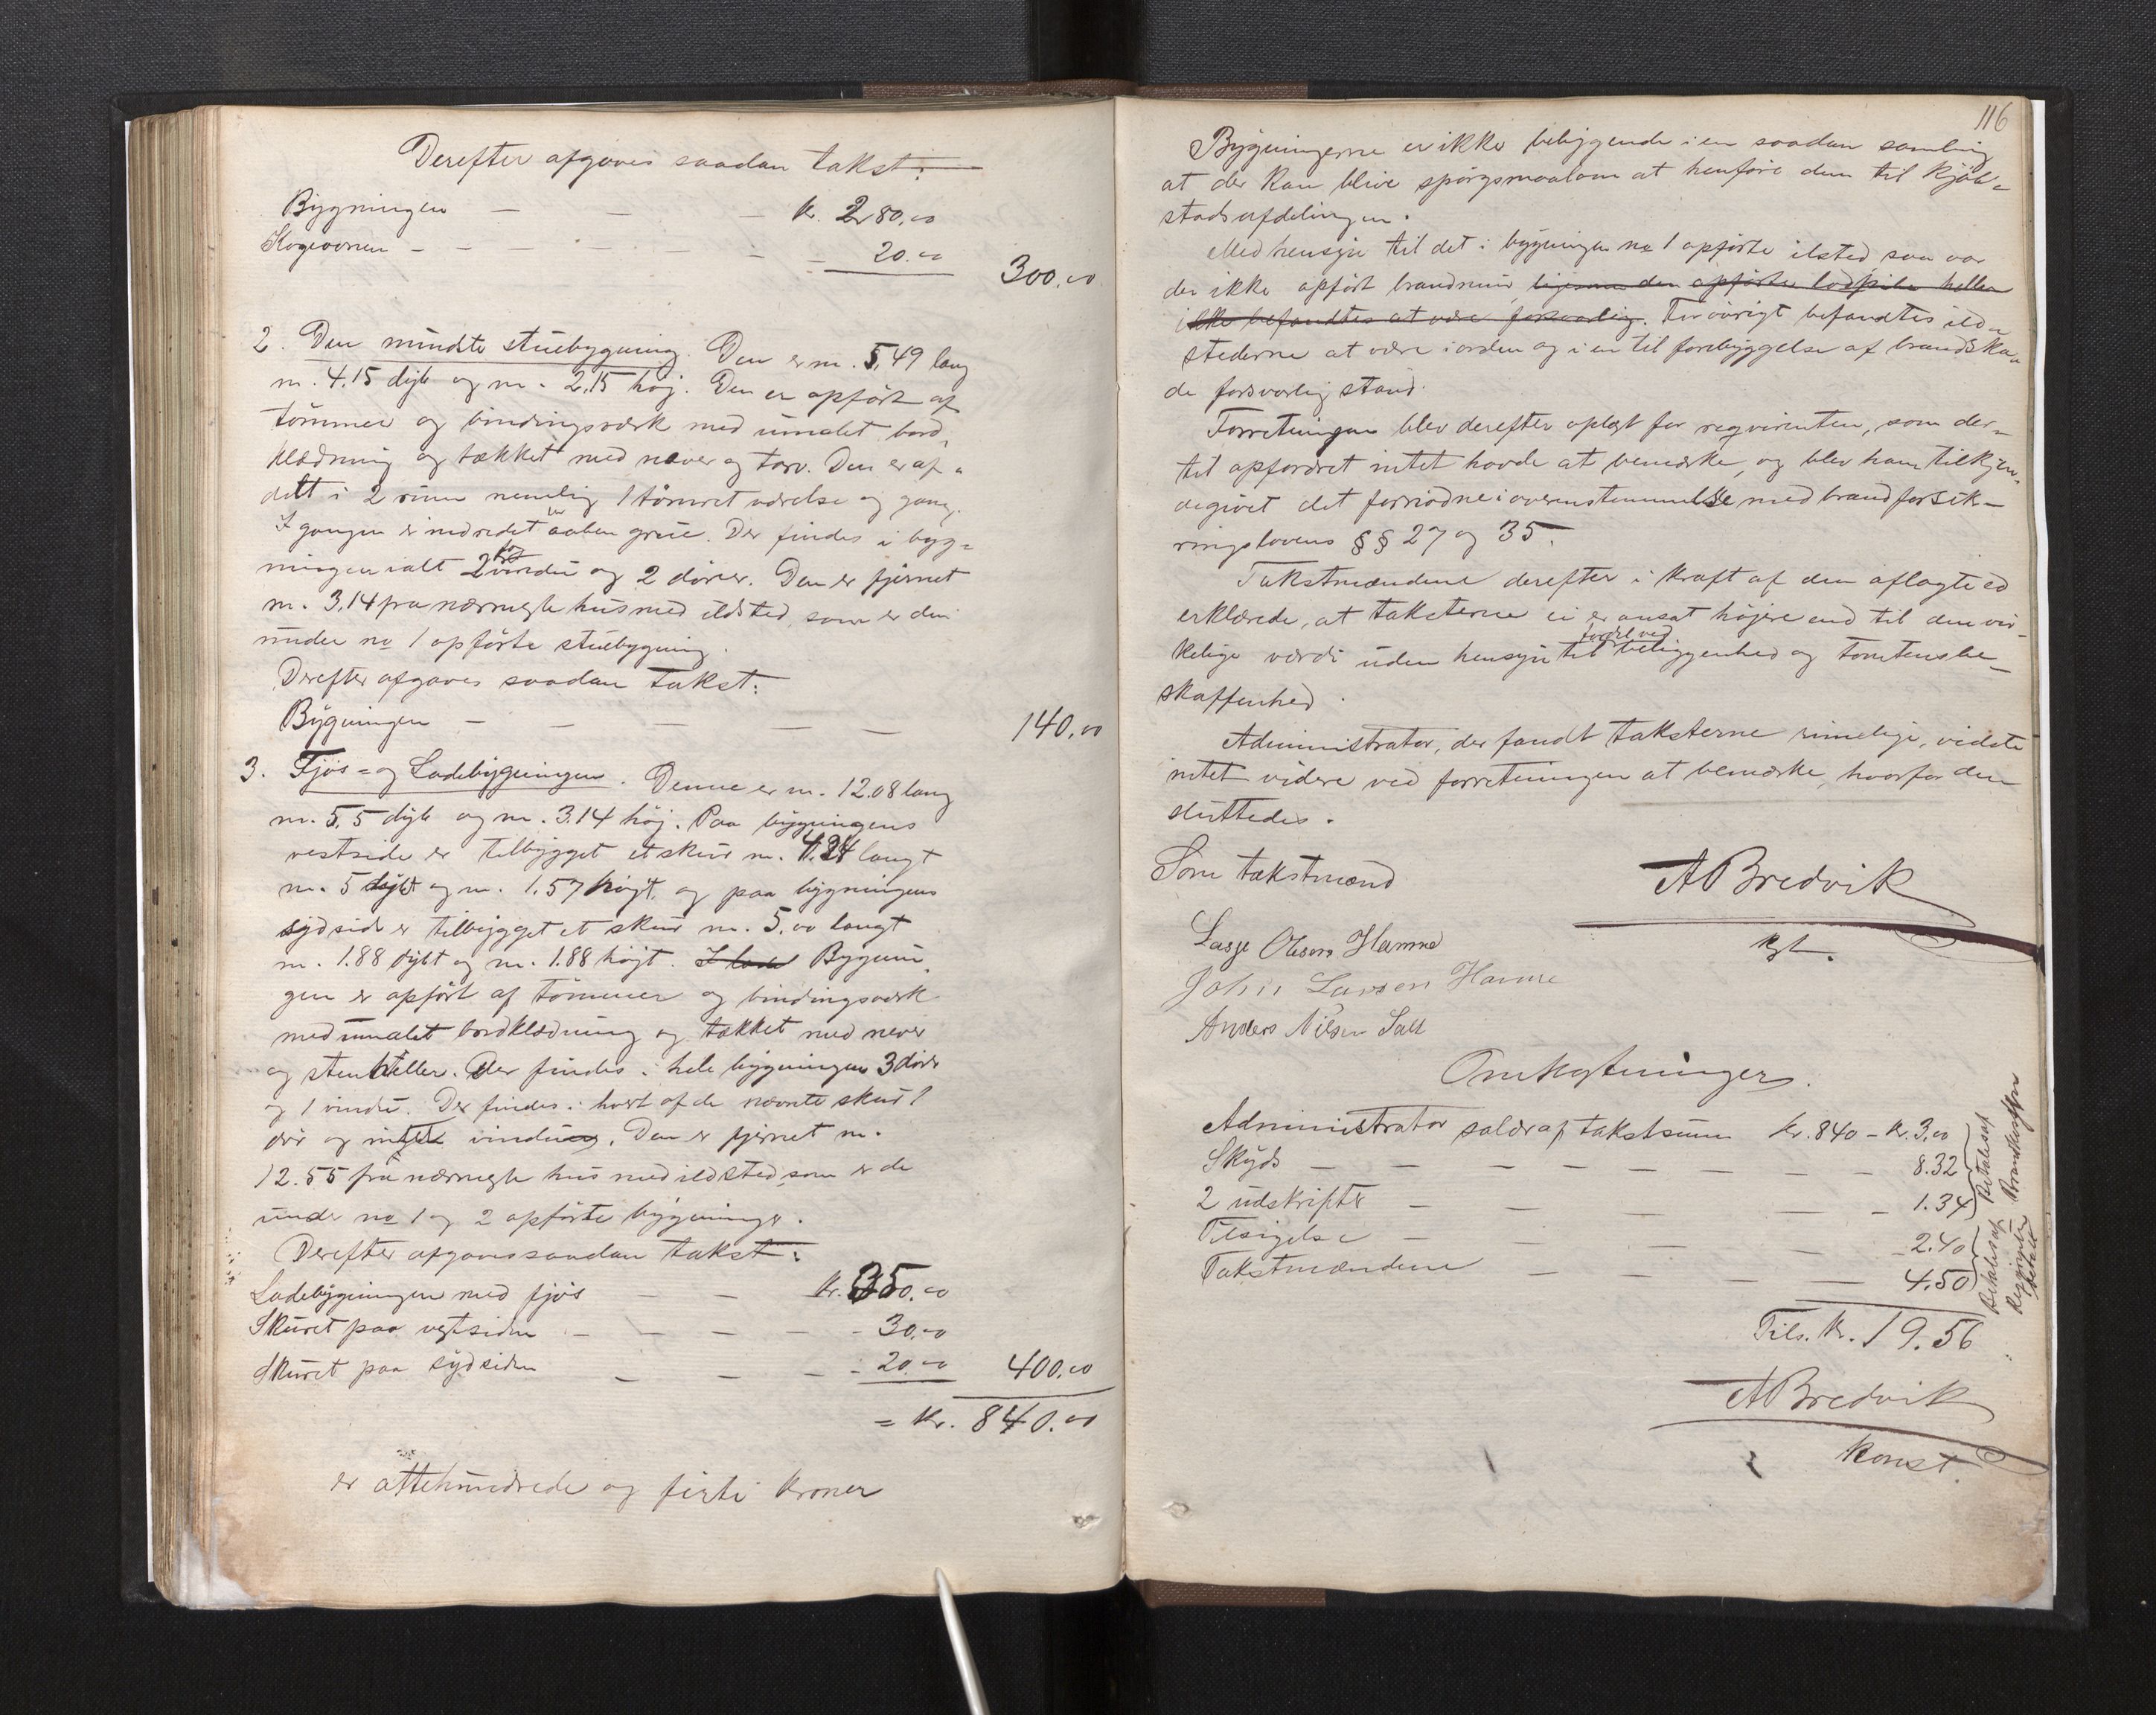 Derefter afgaves saadan takst:
Bygningen — — — kr. 280.00
Kogeovnen — — — — — — 20.00
300.00
2. Den mindste stuebygning. Den er m. 5.49 lang
m. 4.15 dyb og m. 2.15 høj. Den er opført af
tømmer og bindingsværk med umalet bord-
klædning og tækket med næver og torv. Den er af-
delt i 2 rum nemlig 1 tømret værelse og gang.
I gangen er indredet en aaben grue. Der findes i byg-
ningen ialt 2 fag vindu og 2 dører. Den er fjernet
m. 3.14 fra nærmeste hus med ildsted, som er den
under no 1 opførte stuebygning.
Derefter afgaves saadan takst:
Bygningen — — — — — 140.00
3. Fjøs- og Ladebygningen. Denne er m. 12.08 lang
m. 5.5 dyb og m. 3.14 høj. Paa bygningens
vestside er tilbygget et skur m. 4.24 langt
m. 5 dybt og m. 1.57 højt, og paa bygningens
sydside er tilbygget et skur m. 5.00 langt
m. 1.88 dybt og m. 1.88 højt. I lade Bygnin-
gen er opført af tømmer og bindingsværk
med umalet bordklædning og tækket med never
og stenheller. Der findes i hele bygningen 3 dører
og 1 vindu. Der findes i hvert af de nævnte skur 1
dør og intet vindu. Den er fjernet m.
12.55 fra nærmeste hus med ildsted, som er de
under no 1 og 2 opførte bygninger.
Derefter afgaves saadan takst:
Ladebygningen med fjøs — — kr. 350.00
Skuret paa vestsiden — — — — - 30.00
Skuret paa sydsiden — — — - 20.00 400.00
= kr. 840.00
er ottehundrede og firti kroner
116
Bygningerne er ikke beliggende i en saadan samling
at der kan blive spørgsmaal om at henføre dem til kjøb-
stadsafdelingen.
Med hensyn til det i bygningen no 1 opførte ilsted saa var
der ikke opført brandmur, ligesom den opførte lodpibe heller
ikke befandtes at være forsvarlig. Forøvrigt befandtes ild-
stederne at være i orden og i en til forebyggelse af brandska-
de forsvarlig stand.
Forretningen blev derefter oplæst for reqvirenten, som der-
til opfordret intet havde at bemærke, og blev ham tilkjen-
degivet det fornødne i overensstemmelse med brandforsik-
ringslovens §§ 27 og 35.
Takstmændene derefter i kraft af den aflagte ed
erklærede, at taksterne ei er ansat højere end til den vir-
kelige værdi uden hensyn til fordel ved beliggenhed og tomtens be-
skaffenhed.
Administrator, der fandt taksterne rimelige, vidste
intet videre ved forretningen at bemærke, hvorfor den
sluttedes.
Som takstmænd
A Bredvik
kst.
Lasse Olsen Hamre
John Larsen Hamre
Anders Nilsen
Omkostninger.
Administrator salær af takstsum kr. 840 - kr. 3.00
Skyds — — — — — — — 8.32
2 udskrifter — — — — - 1.34
Tilsigelse — — — — - 2.40
Takstmændene — — — — 4.50
Betales af Brandkassen
Betales af Reqvirenten betalt
Tils. kr. 19.56
A Bredvik
konst.